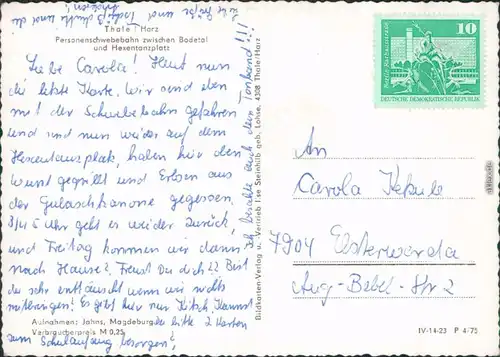 Liebe Grüße und Tschüß
Thale / Harz
Personenschwebebahn zwischen Bodetal
und Hexentanzplatz
Liebe Carola! Heut nun
die letzte Karte, wir sind eben
mit der Schwebebahn gefahren
und sind nun wieder auf dem
Hexentanzplatz, haben hier den
gegrillt und Erbsen aus
der Gulaschkanone gegessen.
3/4 5 Uhr geht es wieder zurück,
und Freitag kommen wir dann
nach Hause? Freust Du dich?? Bist
du sehr enttäuscht wenn wir nichts
mitbringen? Es gibt hier nur Kitsch, Kannst
du bitte 2 Karten
zum Schulanfang besorgen?
Ich bezahle auch dein Tonband!!!
Aufnahmen: Jahns, Magdeburg
Verbraucherpreis M 0,25
Bildkarten-Verlag u. Vertrieb Ilse Steinhilb geb. Lohse, 4308 Thale/Harz
10
Berlin, Rathausstrasse
DEUTSCHE DEMOKRATISCHE REPUBLIK
An
Carola Kekule
7904 Elsterwerda
Aug-Bebel-Str 2
IV-14-23 P 4/75